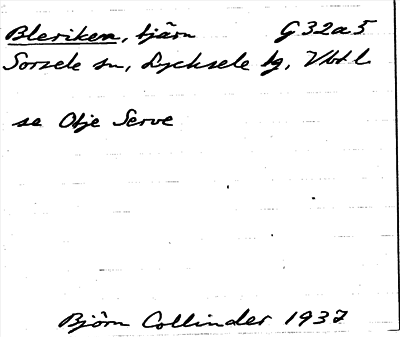 Bleriken, tjärn G 32a5
Sorsele sn, Lycksele tg, Vbtl
se Otje Serve
Björn Collinder 1937